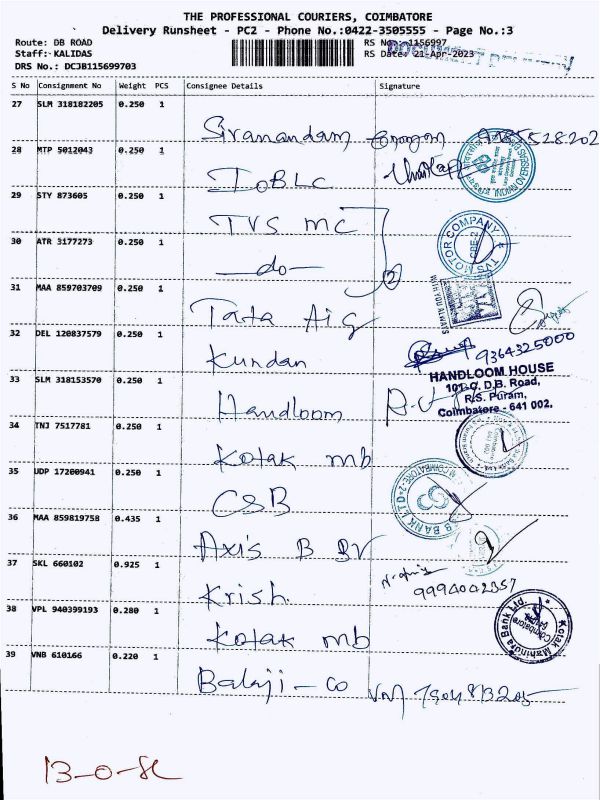 THE PROFESSIONAL COURIERS, COIMBATORE
Delivery Runsheet - PC2 - Phone No.:0422-3505555 - Page No.:3
Route: DB ROAD RS No.: 1156997
Staff: KALIDAS RS Date: 21-Apr-2023
DRS No.: DCJB115699703
S No Consignment No Weight PCS Consignee Details Signature
27 SLM 318182205 0.250 1
Sivanandam
28 MTP 5012043 0.250 1
IOBLC
29 STY 873605 0.250 1
TVS MC
30 ATR 3177273 0.250 1
-do- 2
TVS MOTOR COMPANY
CBE-2
31 MAA 859703709 0.250 1
WITH YOU ALWAYS
Tata Aig
32 DEL 120837579 0.250 1
Kundan 9364325000
HANDLOOM HOUSE
101-C, D.B. Road,
R.S. Puram,
Coimbatore - 641 002.
33 SLM 318153570 0.250 1
Handloom
34 TNJ 7517781 0.250 1
Kotak mb
35 UDP 17200941 0.250 1
CSB
36 MAA 859819758 0.435 1
Axis B
37 SKL 660102 0.925 1
Krish 9994042357
38 VPL 940399193 0.280 1
Kotak mb
Kotak Mahindra Bank Ltd.
Coimbatore
39 VNB 610166 0.220 1
Balaji - co